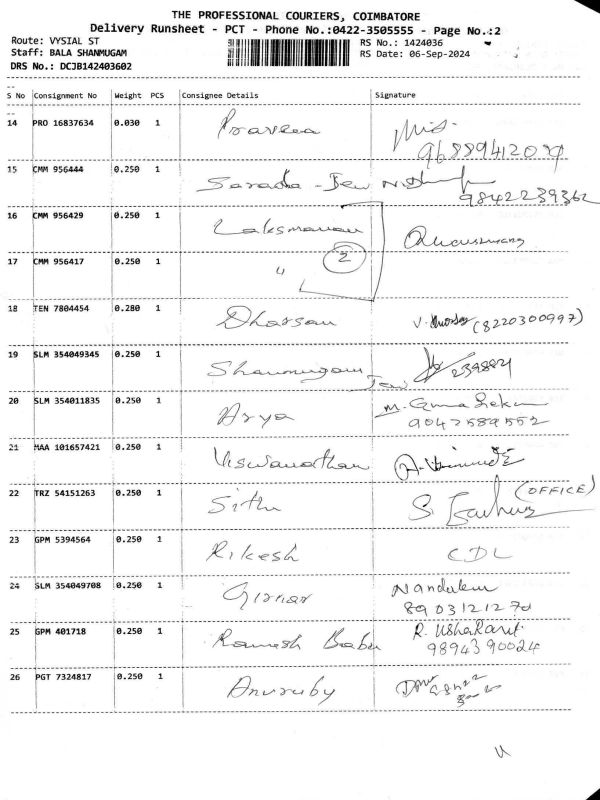 THE PROFESSIONAL COURIERS, COIMBATORE
Delivery Runsheet - PCT - Phone No.:0422-3505555 - Page No.:2
Route: VYSIAL ST RS No.: 1424036
Staff: BALA SHANMUGAM RS Date: 06-Sep-2024
DRS No.: DCJB142403602
S No Consignment No Weight PCS Consignee Details Signature
14 PRO 16837634 0.030 1 Praveena
15 CMM 956444 0.250 1 Sarada - Jew
9842239362
16 CMM 956429 0.250 1 Laksmanan
17 CMM 956417 0.250 1 " 2
18 TEN 7804454 0.280 1 Dharsan V. (8220300997)
19 SLM 354049345 0.250 1 Shanmugam Jew
20 SLM 354011835 0.250 1 Arya M.
9042589552
21 MAA 101657421 0.250 1 Viswanathan
22 TRZ 54151263 0.250 1 Sithu S. (OFFICE)
23 GPM 5394564 0.250 1 Rikesh CDL
24 SLM 354049708 0.250 1 Girnar
8903121270
25 GPM 401718 0.250 1 Ramesh Babu R. UshaRani
9894390024
26 PGT 7324817 0.250 1 Anuruby